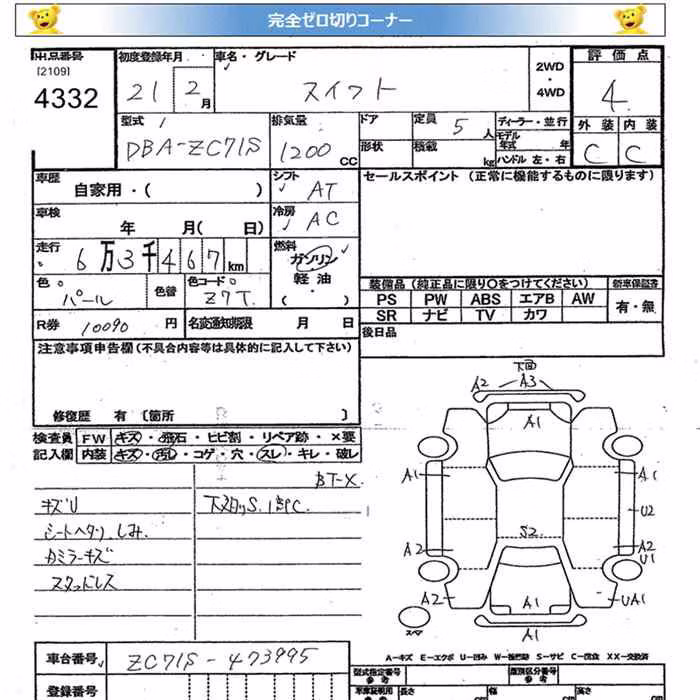 完全ゼロ切りコーナー
出品番号 初度登録年月 車名・グレード 評価点
[2109] 4332
21 2月 スイフト 2WD・4WD 4
外装 内装
C C
型式 排気量 ドア 定員 5人 ディーラー・並行
DBA-ZC71S 1200CC 形状 積載 kg モデル年式 年
ハンドル 左・右
車歴 自家用・( ) シフト AT セールスポイント (正常に機能するものに限ります)
車検 年 月( 日) 冷房 AC
走行 6万3千467km 燃料 ガソリン・軽油・( )
色 パール 色替 色コード Z7T
装備品(純正品に限り○をつけてください) 新車保証書
PS PW ABS エアB AW 有・無
SR ナビ TV カワ
R券 10090円 名変通知期限 月 日 後日品
注意事項申告欄(不具合内容等は具体的に記入して下さい)
修復歴 有 [箇所 ]
検査員 FW キズ・飛石・ヒビ割・リペア跡・×要
記入欄 内装 キズ・汚れ・コゲ・穴・スレ・キレ・破レ
BT-X
キズU 下廻りS.1部C.
シートヘタリ しみ.
カミラーキズ
スタッドレス
下面
A2 A3
A1
A1 A1
U2
S2
A2 A2
U1
A2 UA1
A1
A1
スペア
車台番号 ZC71S-473995
A-キズ E-エクボ U-凹み W-補修跡 S-サビ C-腐食 XX-交換済
登録番号
型式指定番号 参考 類別区分番号 参考
車庫証明用 長さ 幅 高さ